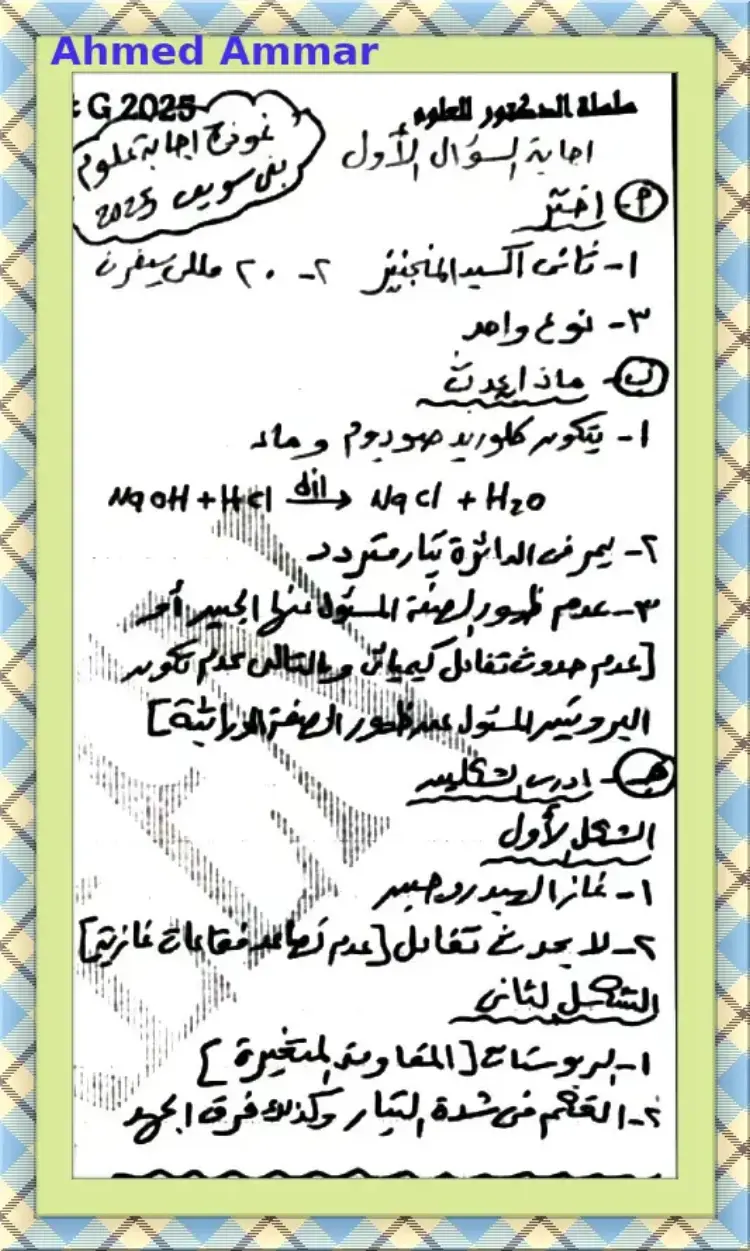 Ahmed Ammar
سلسلة الدكتور للعلوم
: G 2025
نموذج اجابة علوم
بنى سويف 2025
اجابة السؤال الأول
(P) اختر
١- ثانى أكسيد المنجنيز ٢- ٢٠ مللى سيفرت
٣- نوع واحد
(ب)- ماذا يحدث
١- يتكون كلوريد صوديوم وماء
NaOH + HCl dil→ NaCl + H2O
٢- يمر فى الدائرة تيار متردد
٣- عدم ظهور الصفة المسئول عنها الجين أو
[عدم حدوث تفاعل كيميائى وبالتالى عدم تكوين
البروتين المسئول عن ظهور الصفة الوراثية]
(جـ)- ادرس الشكلين
الشكل الأول
١- غاز الهيدروجين
٢- لا يحدث تفاعل [عدم تصاعد فقاعات غازية]
الشكل الثانى
١- الريوستات [المقاومة المتغيرة]
٢- التحكم فى شدة التيار وكذلك فرق الجهد